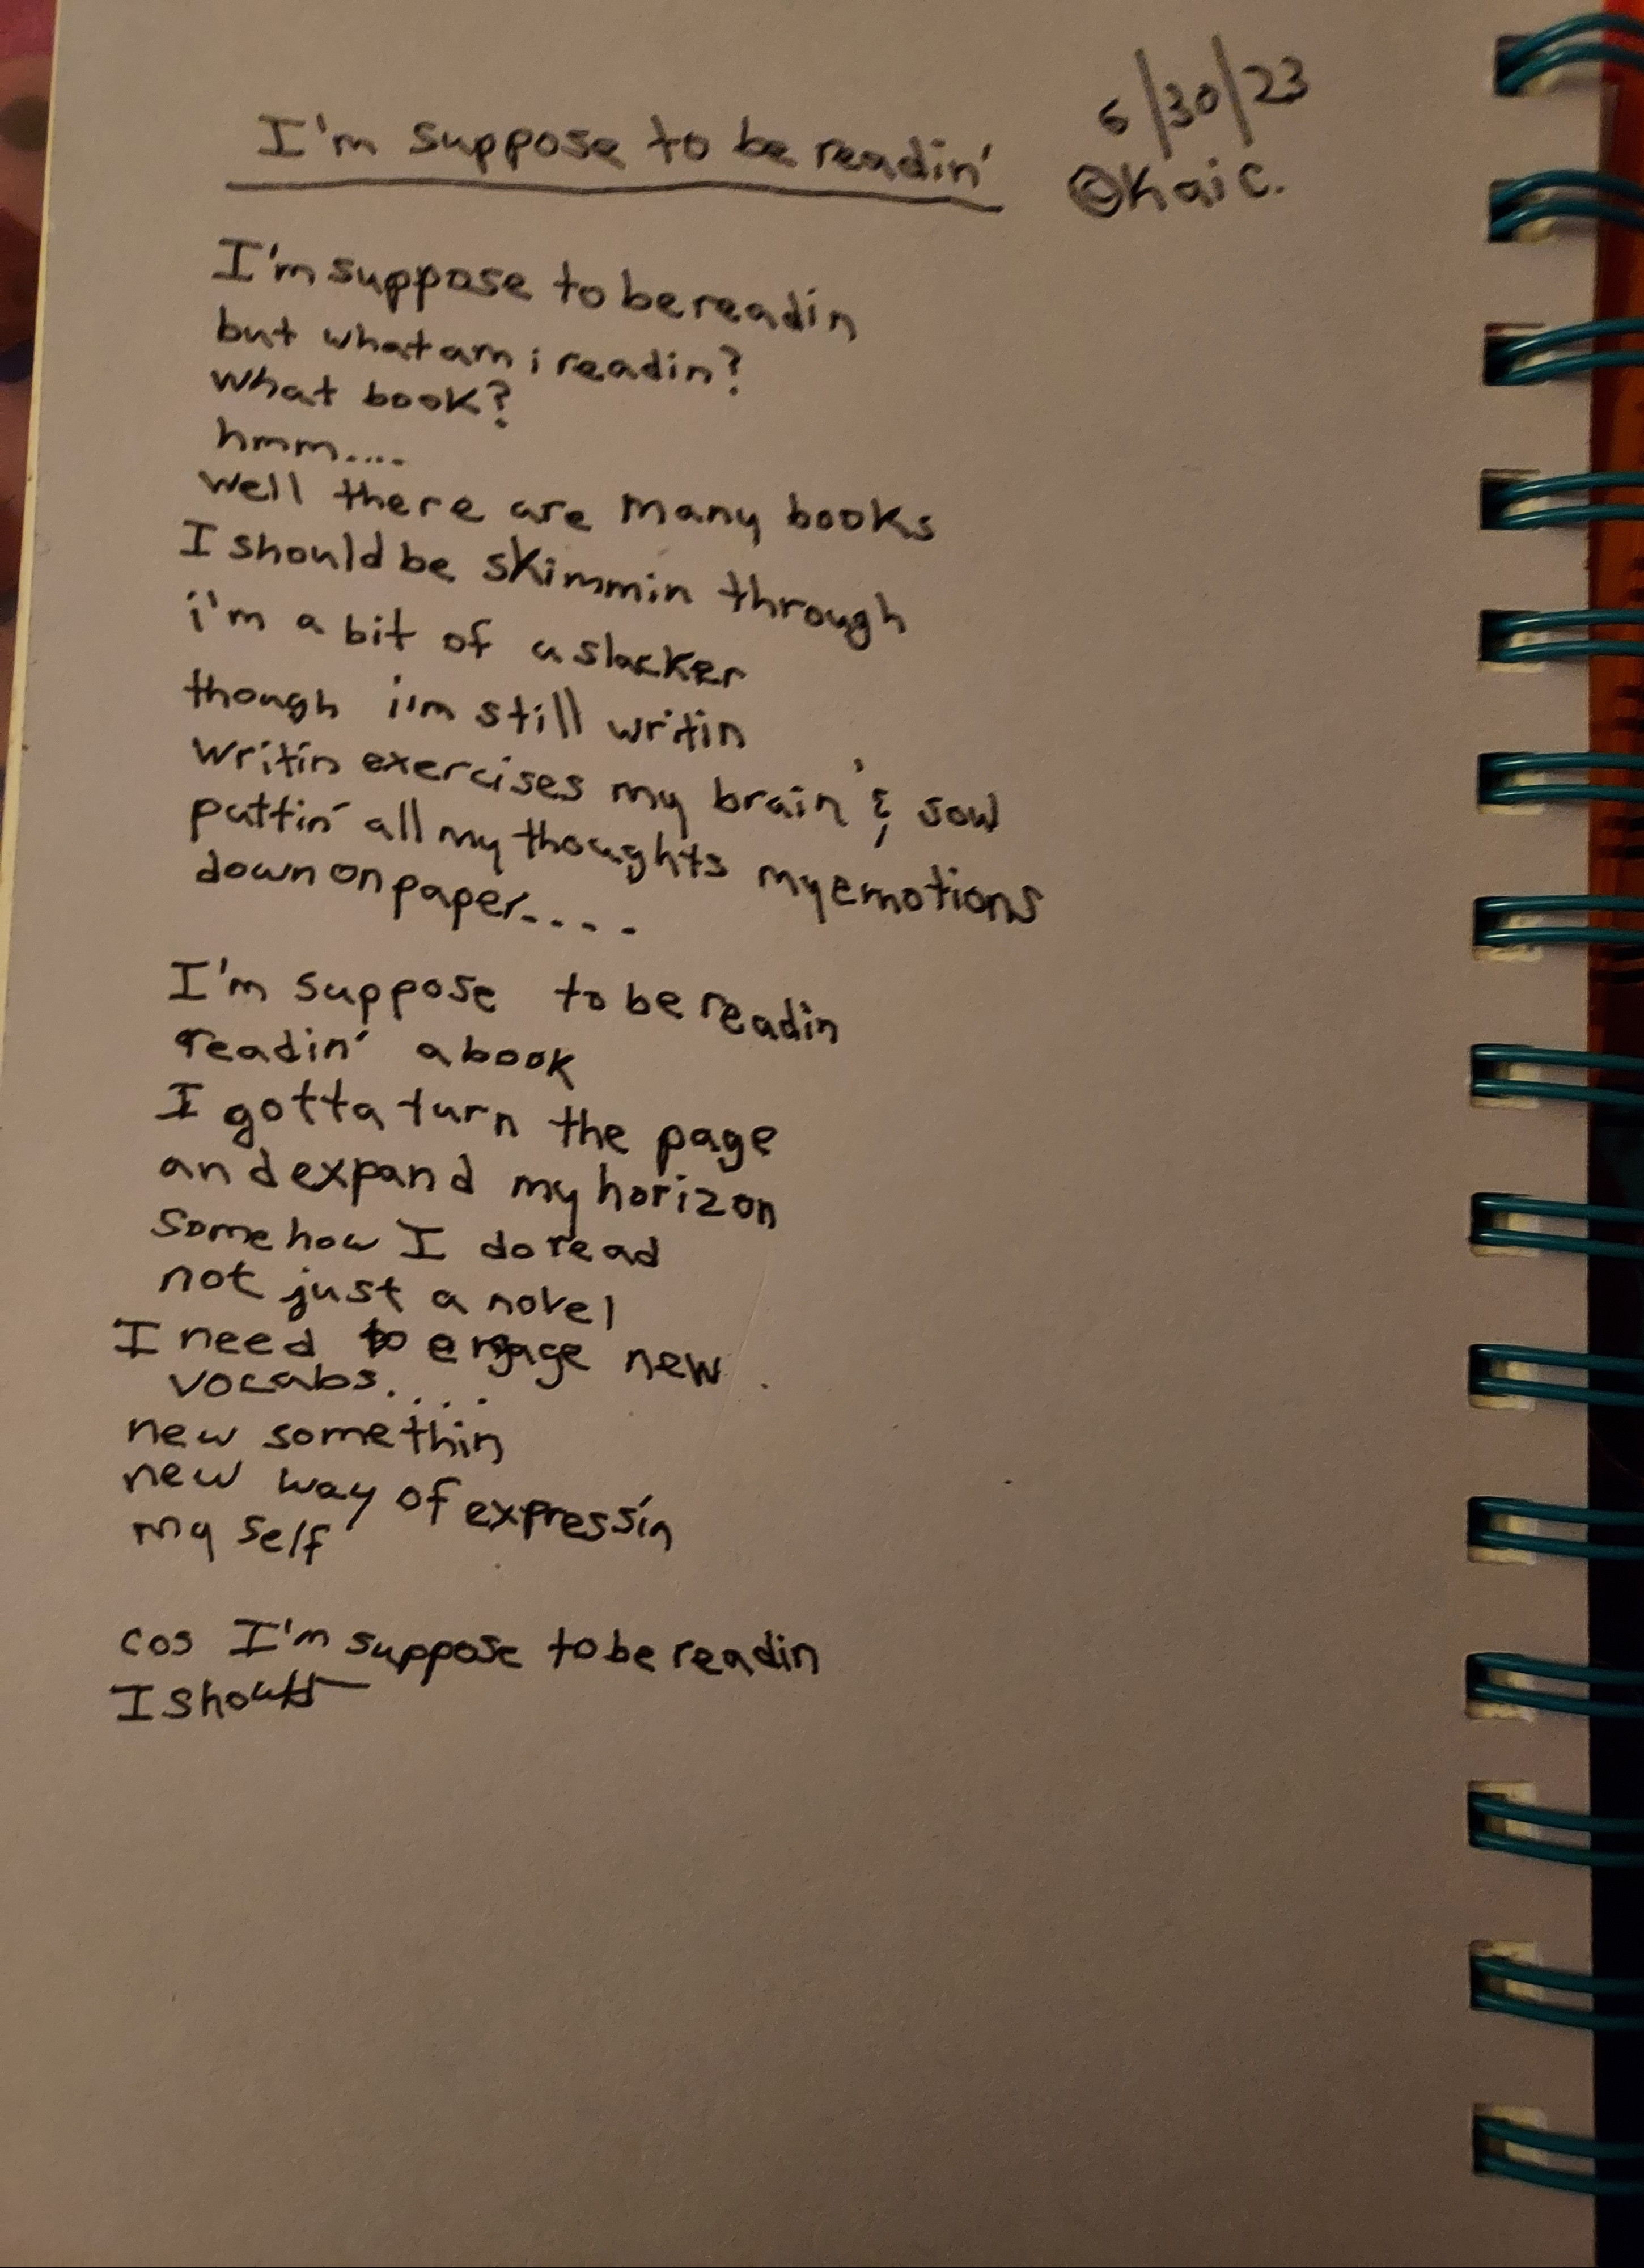 I'm suppose to be readin'
6/30/23
@Kai C.
I'm suppose to be readin
but what am i readin?
what book?
hmm....
well there are many books
I should be skimmin through
i'm a bit of a slacker
though i'm still writin
writin exercises my brain & soul
puttin' all my thoughts my emotions
down on paper....
I'm suppose to be readin
readin' a book
I gotta turn the page
and expand my horizon
somehow I do read
not just a novel
I need to engage new
vocabs....
new somethin
new way of expressin
my self
cos I'm suppose to be readin
I should